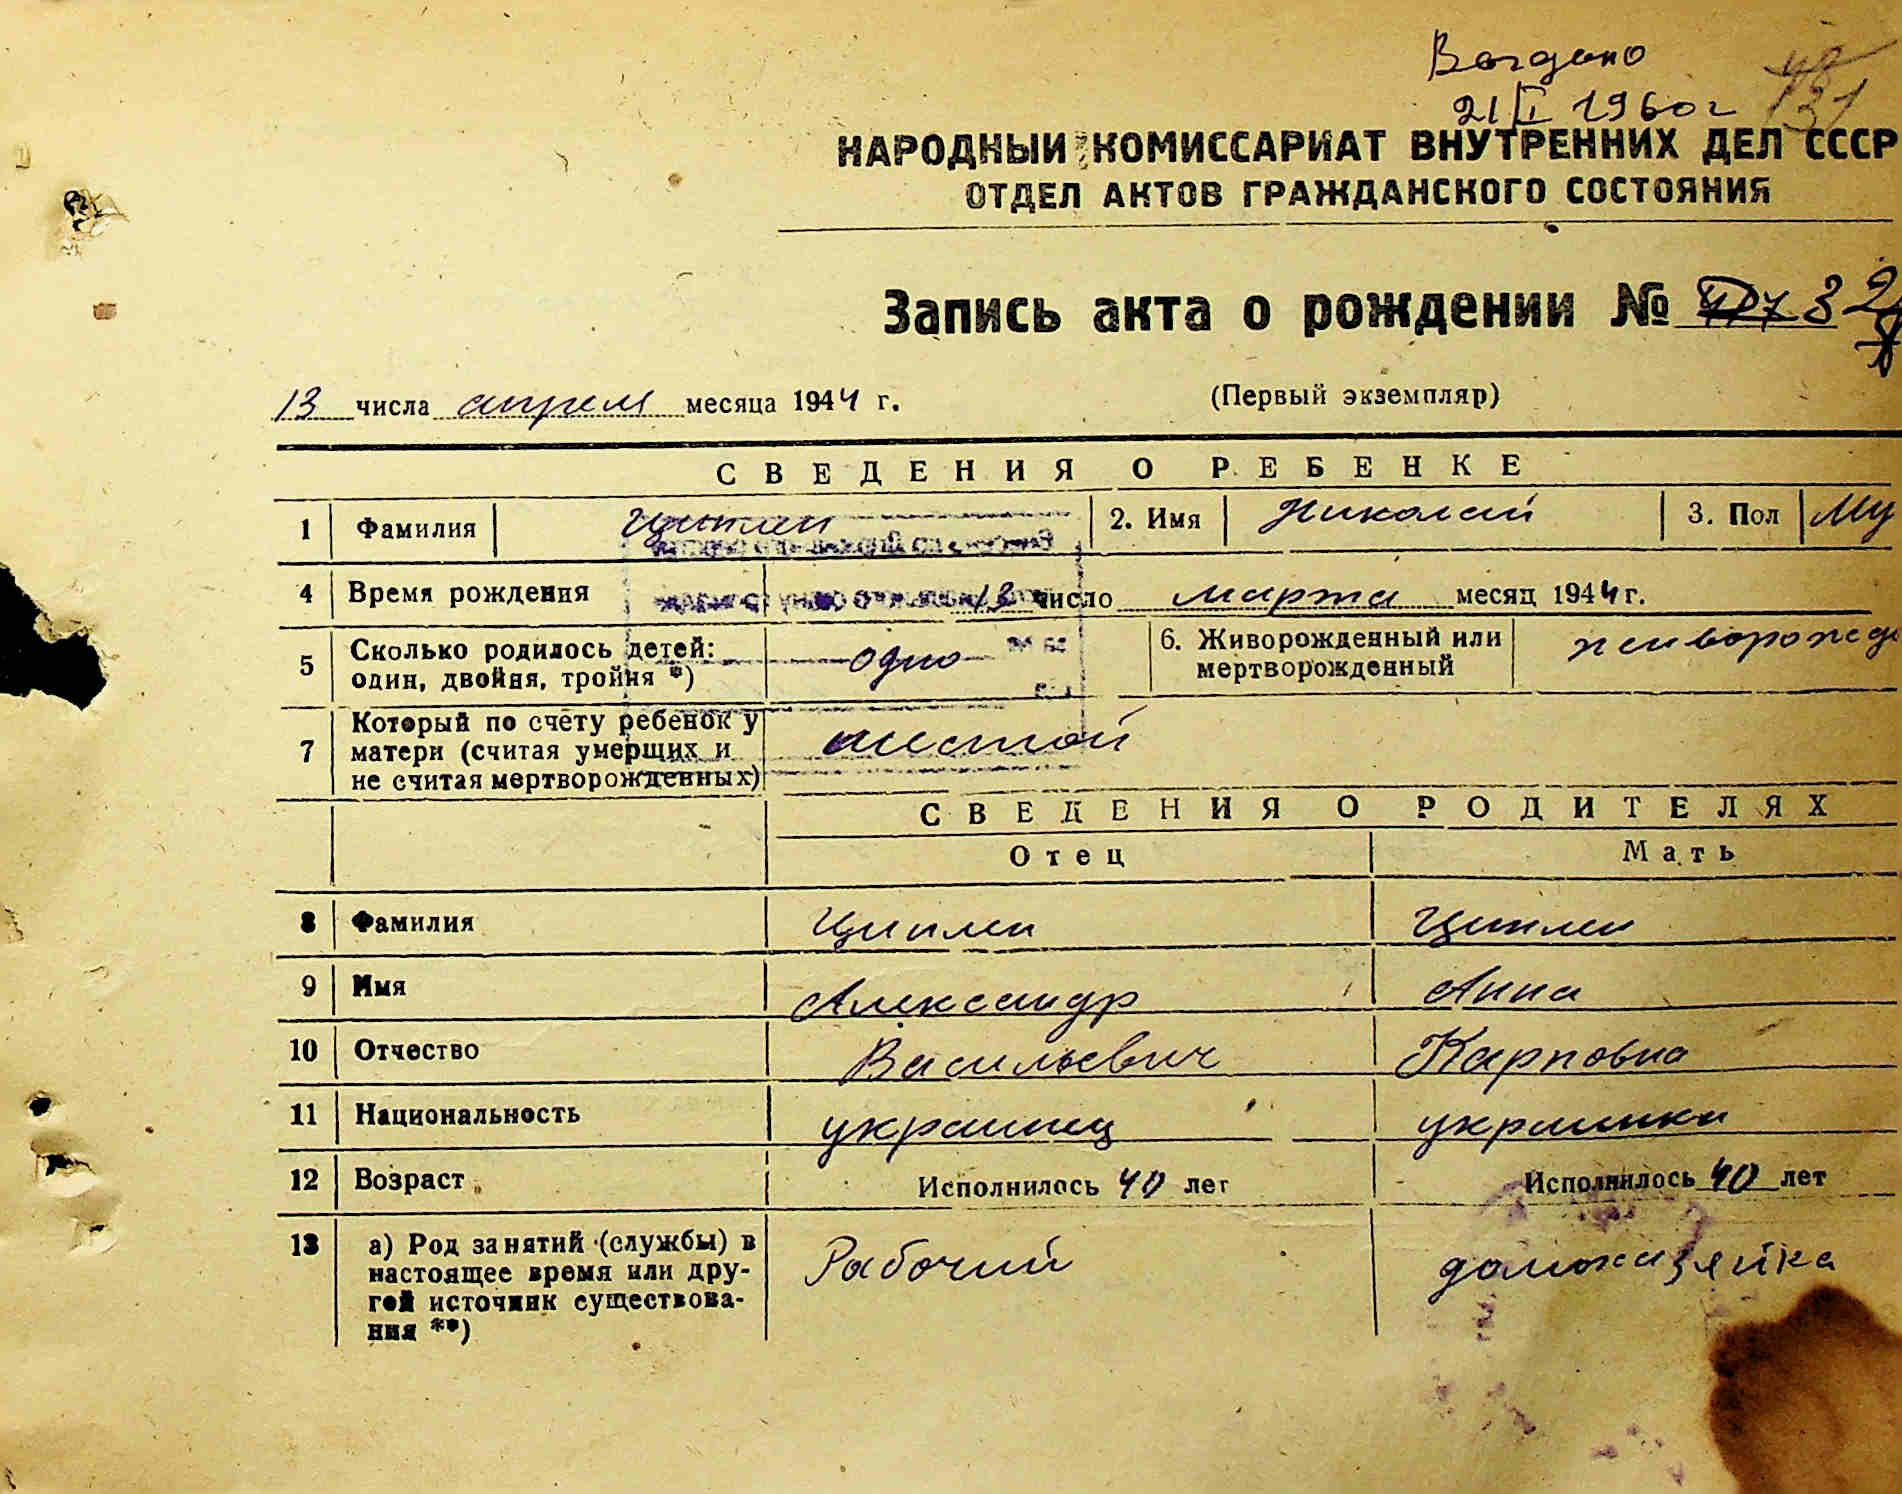 Выдано
21/II 1960 г
131
НАРОДНЫЙ КОМИССАРИАТ ВНУТРЕННИХ ДЕЛ СССР
ОТДЕЛ АКТОВ ГРАЖДАНСКОГО СОСТОЯНИЯ
Запись акта о рождении № 32
13 числа апреля месяца 1944 г.
(Первый экземпляр)
СВЕДЕНИЯ О РЕБЕНКЕ
1 Фамилия Циплен 2. Имя Николай 3. Пол Му
4 Время рождения 13 число марта месяц 1944 г.
5 Сколько родилось детей: один, двойня, тройня *) одно 6. Живорожденный или мертворожденный живорожде
7 Который по счету ребенок у матери (считая умерших и не считая мертворожденных) шестой
СВЕДЕНИЯ О РОДИТЕЛЯХ
Отец Мать
8 Фамилия Циплен Циплен
9 Имя Александр Анна
10 Отчество Васильевич Карповна
11 Национальность украинец украинка
12 Возраст Исполнилось 40 лет Исполнилось 40 лет
13 а) Род занятий (службы) в Рабочий домохозяйка
настоящее время или дру-
гой источник существова-
ния **)